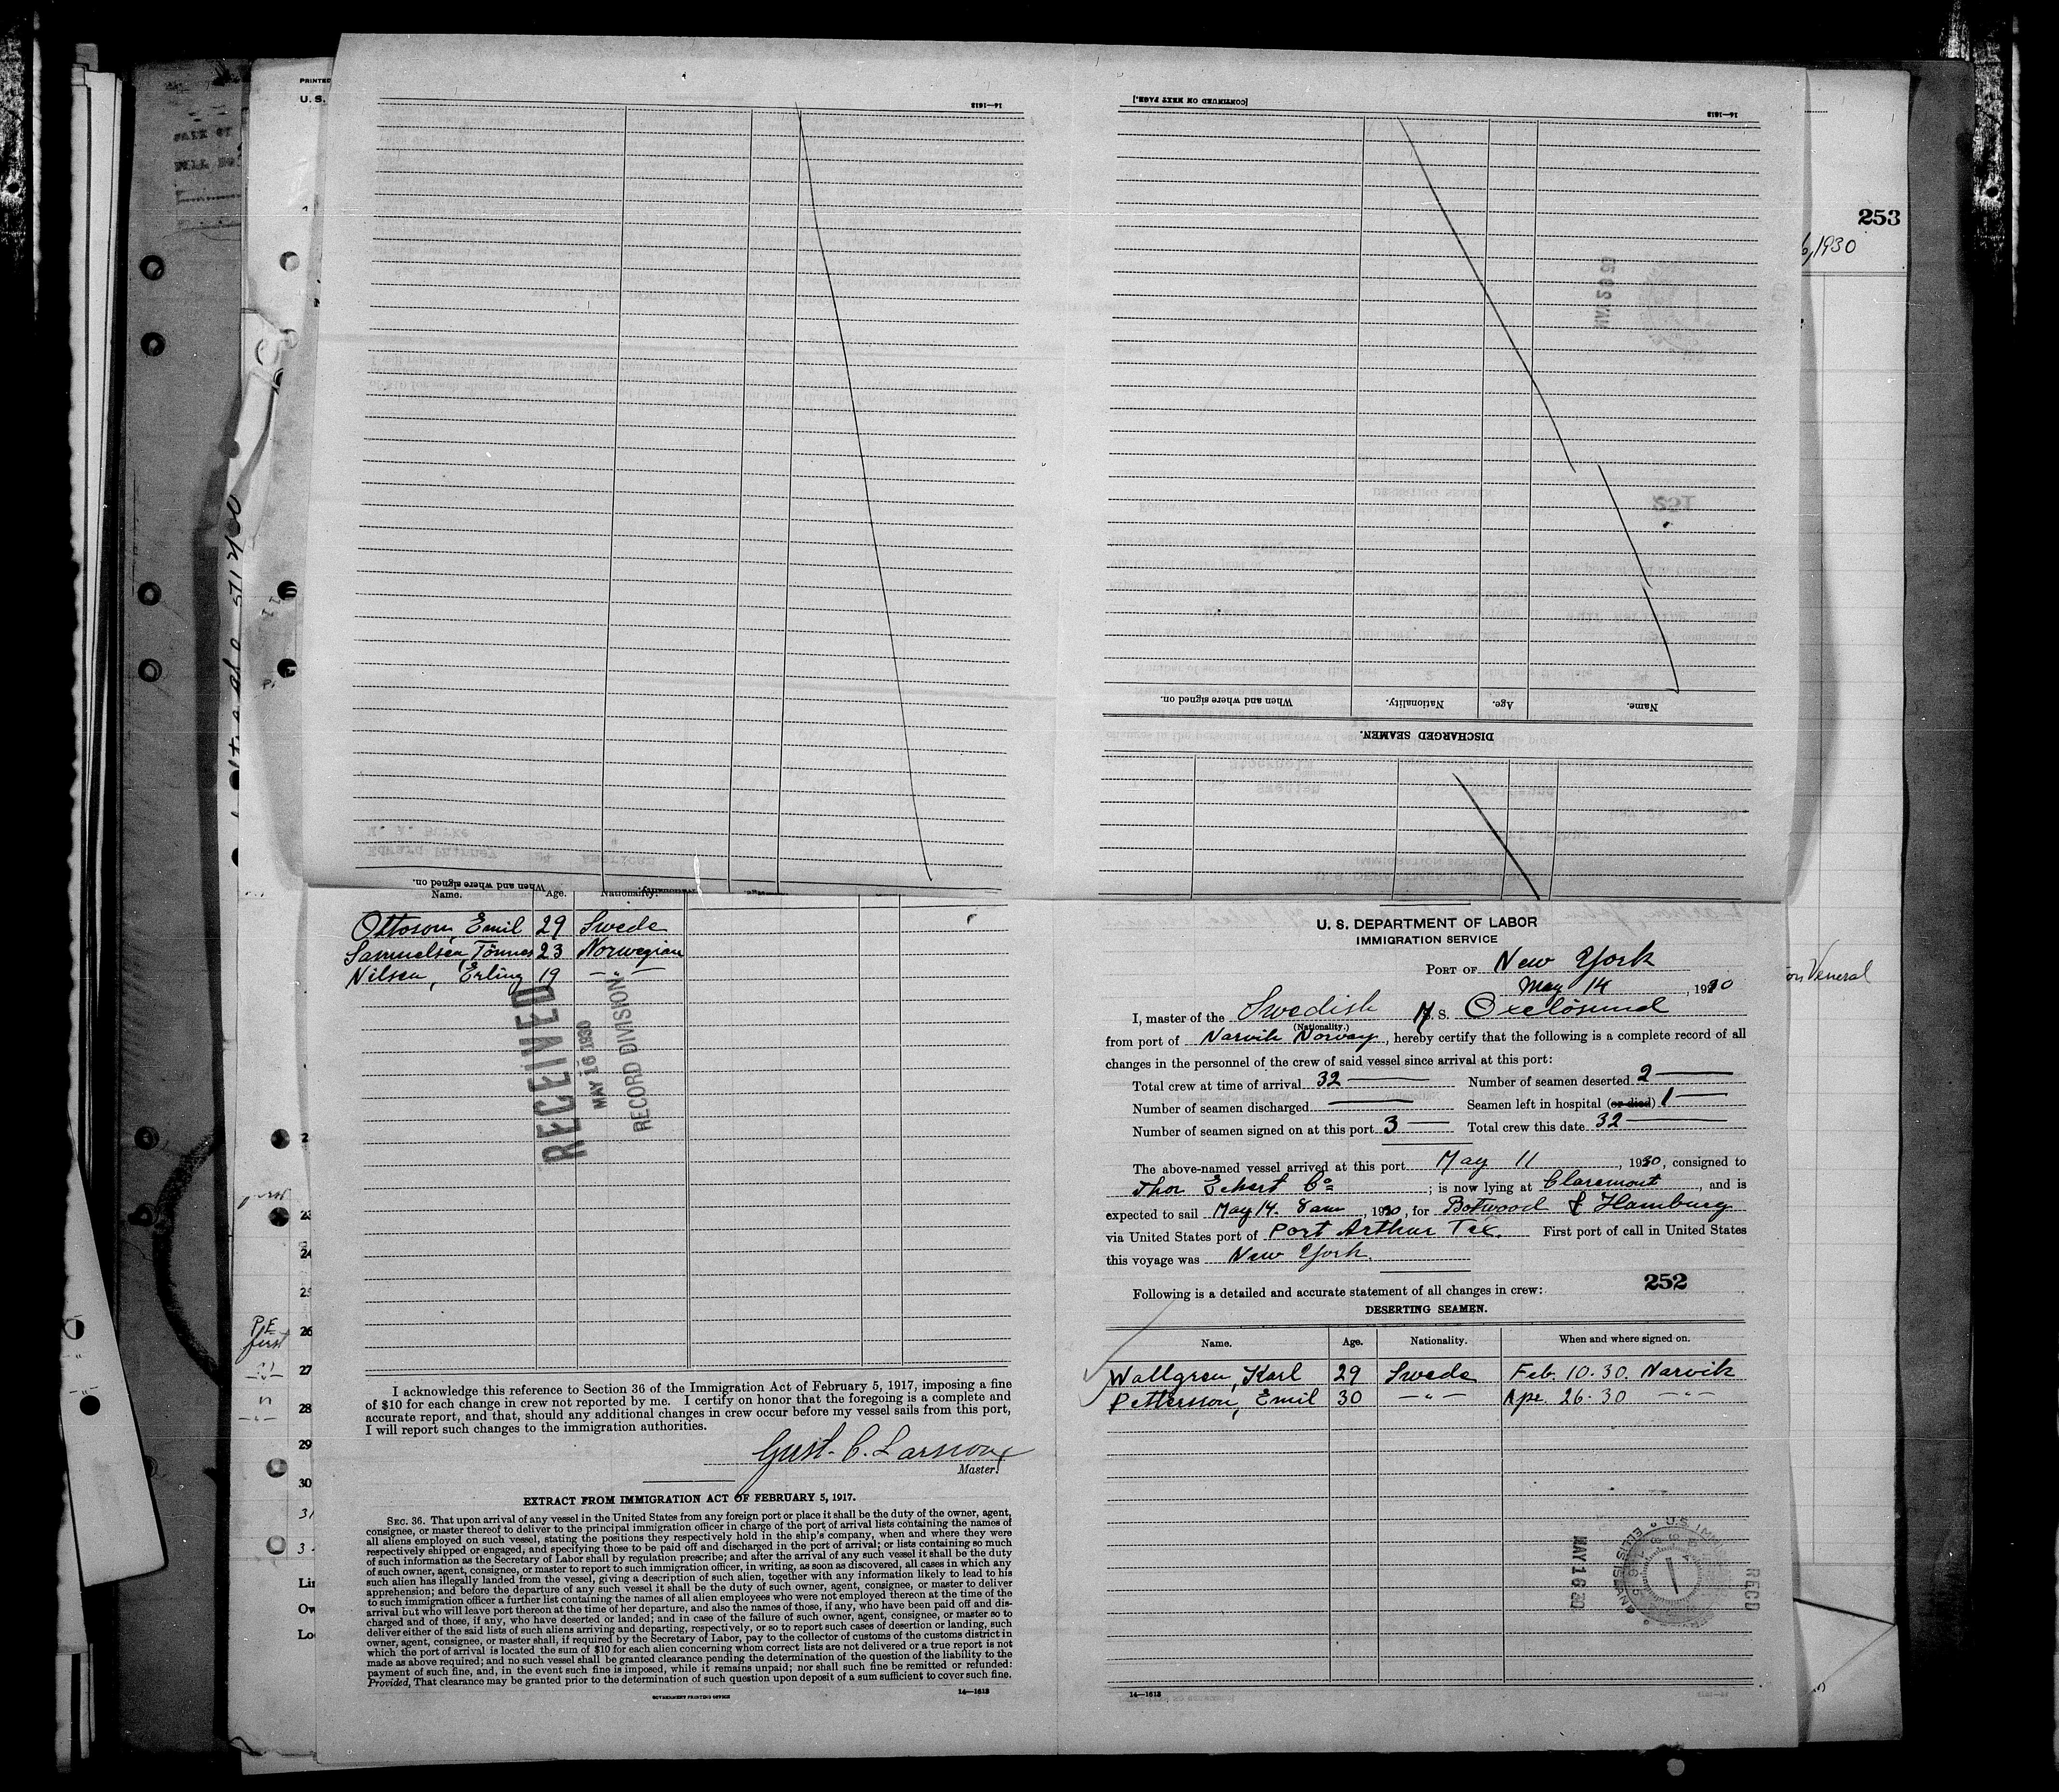 253
6, 1930
14—1613
[CONTINUED ON NEXT PAGE.]
14—1613
Name.
Age.
Nationality.
When and where signed on.
DISCHARGED SEAMEN.
When and where signed on.
Nationality.
Name. Age. Nationality.
Ottoson, Emil 29 Swede
Samuelsen, Tönnes 23 Norwegian
Nilsen, Erling 19 —"—
RECEIVED
MAY 16 1930
RECORD DIVISION
I acknowledge this reference to Section 36 of the Immigration Act of February 5, 1917, imposing a fine
of $10 for each change in crew not reported by me. I certify on honor that the foregoing is a complete and
accurate report, and that, should any additional changes in crew occur before my vessel sails from this port,
I will report such changes to the immigration authorities.
Gust. C. Larsson
Master.
EXTRACT FROM IMMIGRATION ACT OF FEBRUARY 5, 1917.
SEC. 36. That upon arrival of any vessel in the United States from any foreign port or place it shall be the duty of the owner, agent,
consignee, or master thereof to deliver to the principal immigration officer in charge of the port of arrival lists containing the names of
all aliens employed on such vessel, stating the positions they respectively hold in the ship's company, when and where they were
respectively shipped or engaged, and specifying those to be paid off and discharged in the port of arrival; or lists containing so much
of such information as the Secretary of Labor shall by regulation prescribe; and after the arrival of any such vessel it shall be the duty
of such owner, agent, consignee, or master to report to such immigration officer, in writing, as soon as discovered, all cases in which any
such alien has illegally landed from the vessel, giving a description of such alien, together with any information likely to lead to his
apprehension; and before the departure of any such vessel it shall be the duty of such owner, agent, consignee, or master to deliver
to such immigration officer a further list containing the names of all alien employees who were not employed thereon at the time of the
arrival but who will leave port thereon at the time of her departure, and also the names of those, if any, who have been paid off and dis-
charged and of those, if any, who have deserted or landed; and in case of the failure of such owner, agent, consignee, or master so to
deliver either of the said lists of such aliens arriving and departing, respectively, or so to report such cases of desertion or landing, such
owner, agent, consignee, or master shall, if required by the Secretary of Labor, pay to the collector of customs of the customs district in
which the port of arrival is located the sum of $10 for each alien concerning whom correct lists are not delivered or a true report is not
made as above required; and no such vessel shall be granted clearance pending the determination of the question of the liability to the
payment of such fine, and, in the event such fine is imposed, while it remains unpaid; nor shall such fine be remitted or refunded:
Provided, That clearance may be granted prior to the determination of such question upon deposit of a sum sufficient to cover such fine.
GOVERNMENT PRINTING OFFICE 14—1613
U. S. DEPARTMENT OF LABOR
IMMIGRATION SERVICE
PORT OF New York
May 14, 1930
I, master of the Swedish M. S. Oxelösund
(Nationality.)
from port of Narvik Norway, hereby certify that the following is a complete record of all
changes in the personnel of the crew of said vessel since arrival at this port:
Total crew at time of arrival 32 — Number of seamen deserted 2 —
Number of seamen discharged — Seamen left in hospital (or died) 1 —
Number of seamen signed on at this port 3 — Total crew this date 32 —
The above-named vessel arrived at this port May 11, 1930, consigned to
Thor Eckert Co; is now lying at Claremont, and is
expected to sail May 14. 8 am, 1930, for Botwood & Hamburg
via United States port of Port Arthur Tex. First port of call in United States
this voyage was New York.
252
Following is a detailed and accurate statement of all changes in crew:
DESERTING SEAMEN.
Name. Age. Nationality. When and where signed on.
Wallgren, Karl 29 Swede Feb. 10-30. Narvik
Petterson, Emil 30 —"— Apr. 26-30 —"—
MAY 16 30
RECD
14—1613